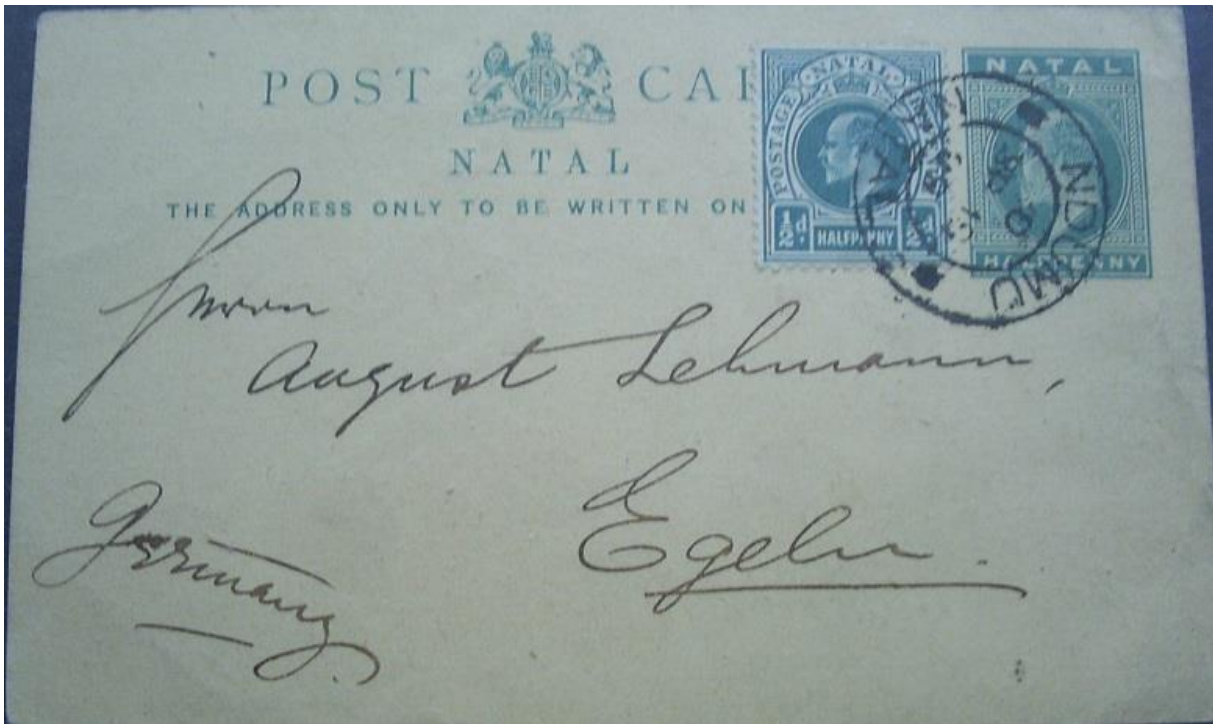 POST CAR
NATAL
THE ADDRESS ONLY TO BE WRITTEN ON
NATAL
POSTAGE
½d. HALFPENNY ½d.
NATAL
HALFPENNY
NDUMU
NATAL
Herrn
August Lehmann,
Egeln.
Germany